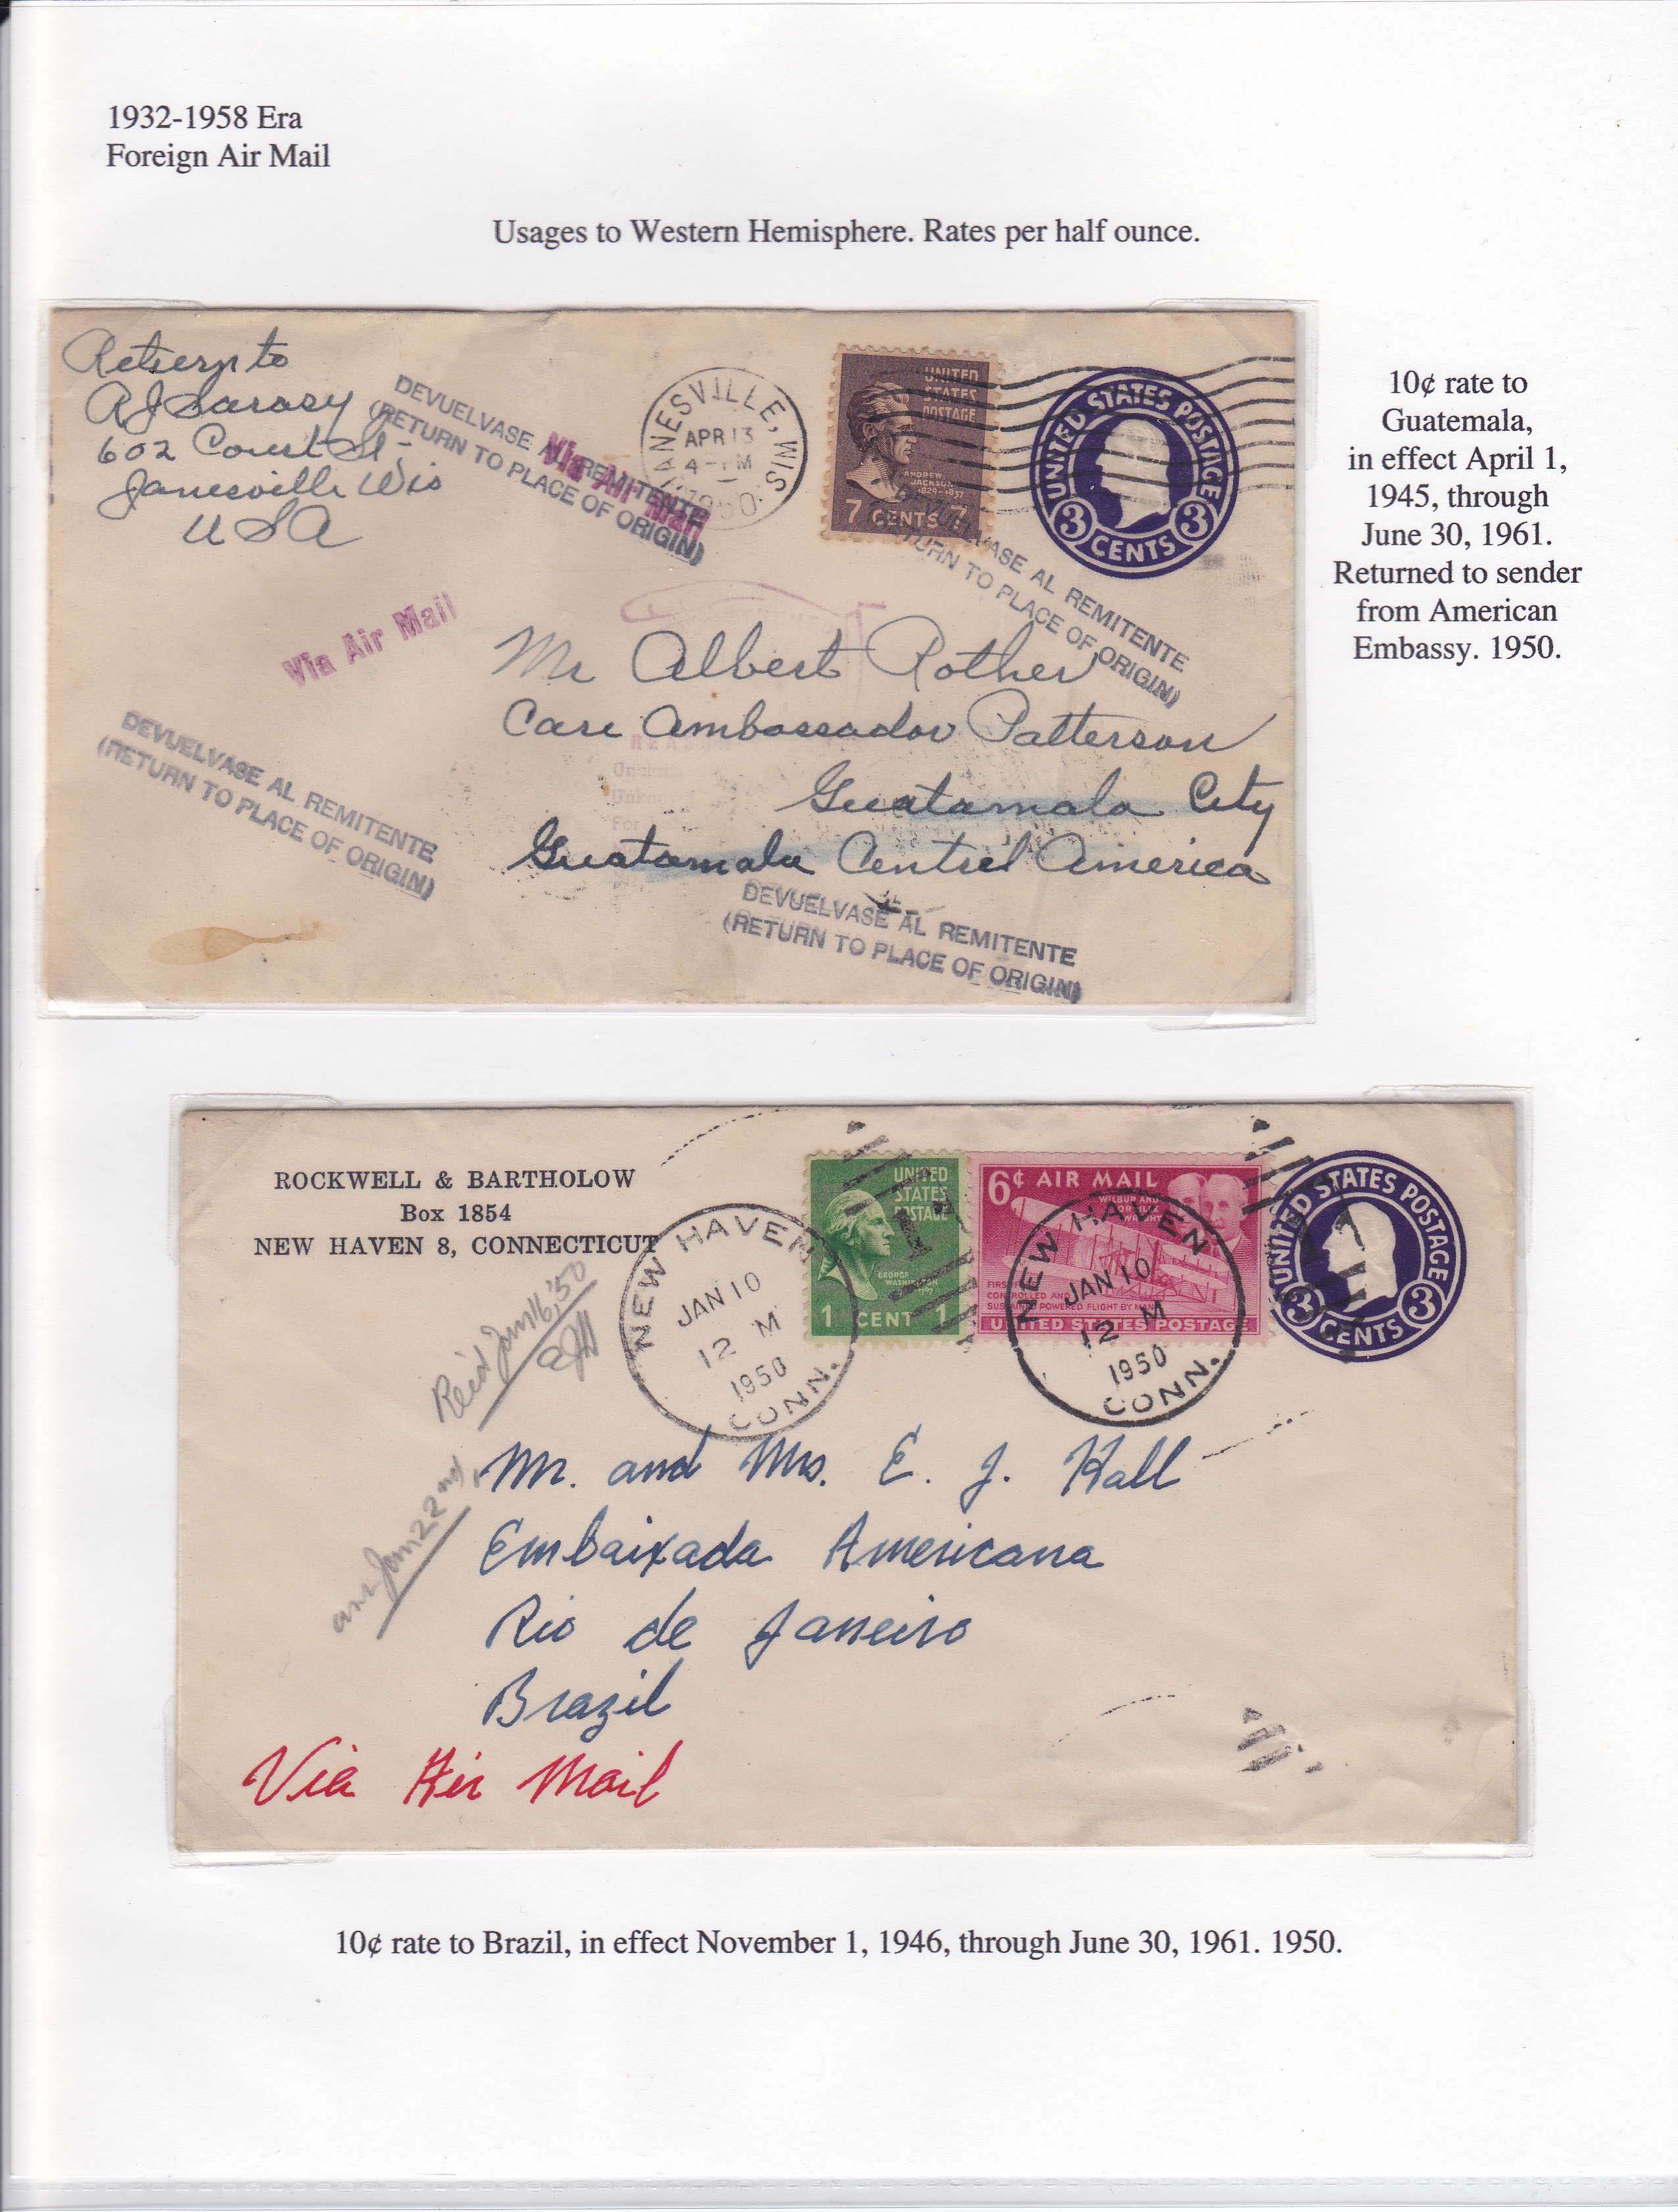 1932-1958 Era
Foreign Air Mail
Usages to Western Hemisphere. Rates per half ounce.
Return to
602 Court St.
Janesville Wis
USA
DEVUELVASE AL REMITENTE
(RETURN TO PLACE OF ORIGIN)
Via Air Mail
JANESVILLE, WIS
APR 13
4-PM
1950
UNITED
STATES
POSTAGE
ANDREW
JACKSON
1829-1837
7 CENTS 7
UNITED STATES POSTAGE
3 CENTS 3
DEVUELVASE AL REMITENTE
RETURN TO PLACE OF ORIGIN)
Via Air Mail
Mr Albert Rother
Care Ambassador Patterson
Guatamala City
Guatamala Central America
DEVUELVASE AL REMITENTE
(RETURN TO PLACE OF ORIGIN)
DEVUELVASE AL REMITENTE
(RETURN TO PLACE OF ORIGIN)
10¢ rate to
Guatemala,
in effect April 1,
1945, through
June 30, 1961.
Returned to sender
from American
Embassy. 1950.
ROCKWELL & BARTHOLOW
Box 1854
NEW HAVEN 8, CONNECTICUT
NEW HAVEN
JAN 10
12 M
1950
CONN.
UNITED
STATES
POSTAGE
GEORGE
WASHINGTON
1 CENT 1
6¢ AIR MAIL
WILBUR AND
ORVILLE
WRIGHT
FIRST
CONTROLLED AND
SUSTAINED POWERED FLIGHT BY MAN
UNITED STATES POSTAGE
NEW HAVEN
JAN 10
12 M
1950
CONN.
UNITED STATES POSTAGE
3 CENTS 3
Rec'd Jan 16, '50
ans Jan 22nd,
Mr. and Mrs. E. J. Hall
Embaixada Americana
Rio de Janeiro
Brazil
Via Air Mail
10¢ rate to Brazil, in effect November 1, 1946, through June 30, 1961. 1950.